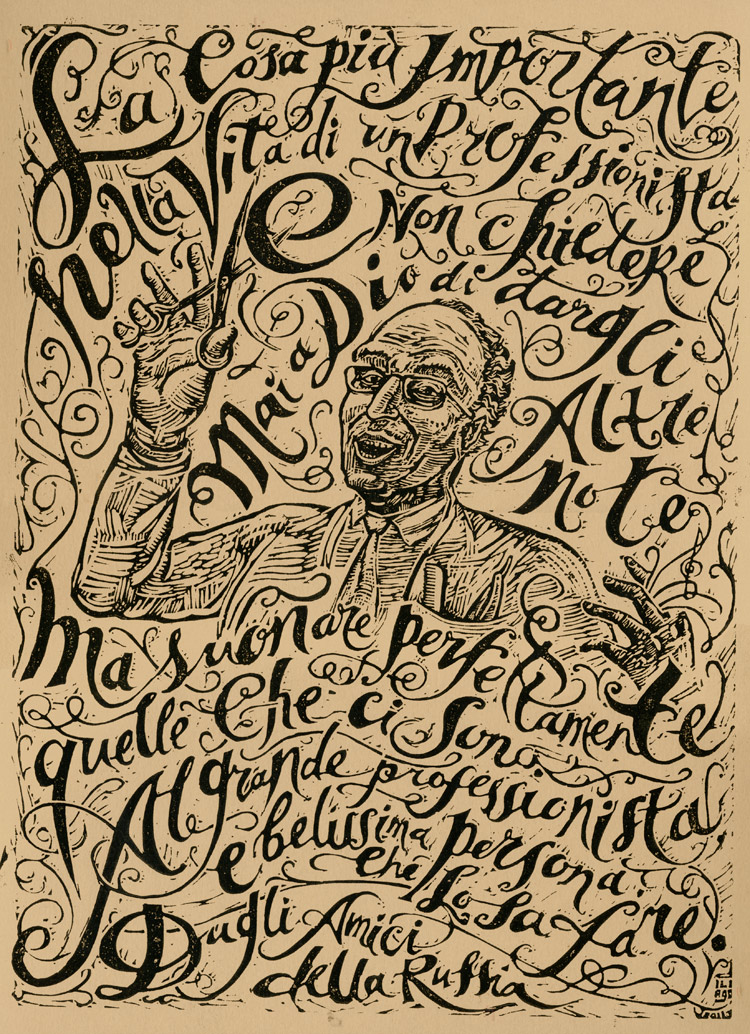 La Cosa più Importante
nella Vita di un Professionista
e Non chiedere
Mai a Dio di dargli
Altre
note
ma suonare perfettamente
quelle Che ci Sono.
Al grande professionista
e belissima persona.
che Lo Sa fare.
Dagli Amici
della Russia